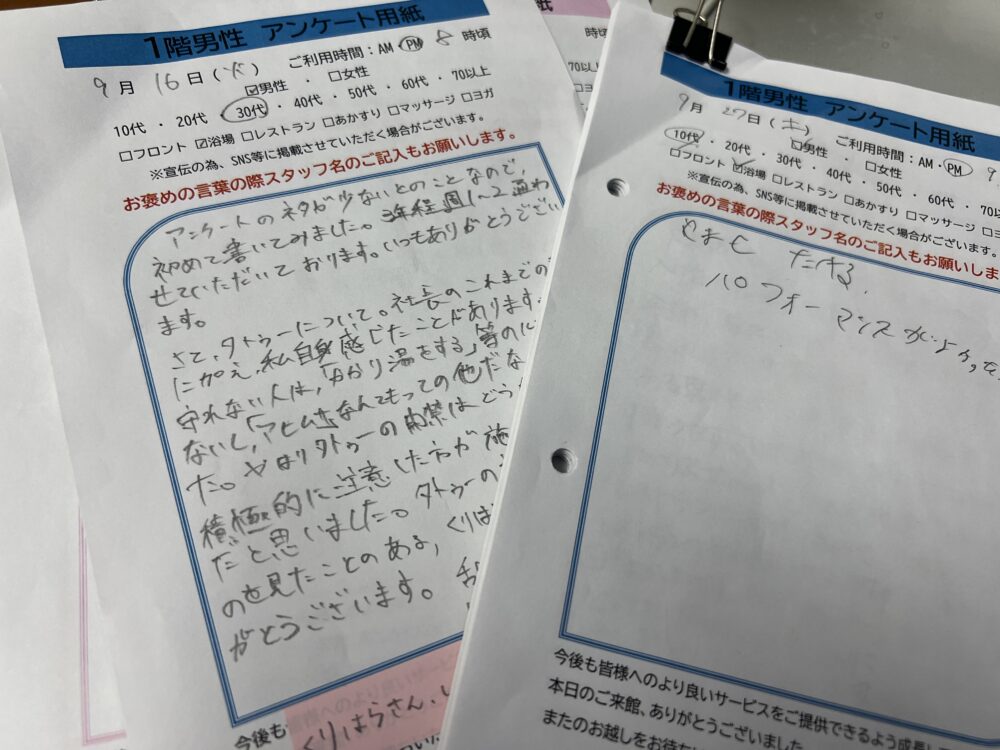 1階男性 アンケート用紙
9月 16日(火) ご利用時間:AM・PM 8時頃
☑男性 ・ □女性
10代 ・ 20代 ・ 30代 ・ 40代 ・ 50代 ・ 60代 ・ 70以上
□フロント ☑浴場 □レストラン □あかすり □マッサージ □ヨガ
※宣伝の為、SNS等に掲載させていただく場合がございます。
お褒めの言葉の際スタッフ名のご記入もお願いします。
アンケートのネタが少ないとのことなので、
初めて書いてみました。3年程週1〜2通わ
せていただいております。いつもありがとうござい
ます。
さて、タトゥーについて。社長のこれまでの
に加え、私自身感じたことがあります。
守れない人は、「かかり湯をする」等の
ないし、
た。やはりタトゥーの
積極的に注意した方が施
だと思いました。タトゥーの
のも見たことのある、くりは
がとうございます。
今後も
くりはらさん、
時頃
70以上
1階男性 アンケート用紙
9月 27日(土) ご利用時間:AM・PM 9
☑男性 ・ □女性
10代 ・ 20代 ・ 30代 ・ 40代 ・ 50代 ・ 60代 ・ 70以
□フロント ☑浴場 □レストラン □あかすり □マッサージ □ヨ
※宣伝の為、SNS等に掲載させていただく場合がございます。
お褒めの言葉の際スタッフ名のご記入もお願いしま
パフォーマンスがよかった
今後も皆様へのより良いサービスをご提供できるよう成長
本日のご来館、ありがとうございました
またのお越しをお待ち